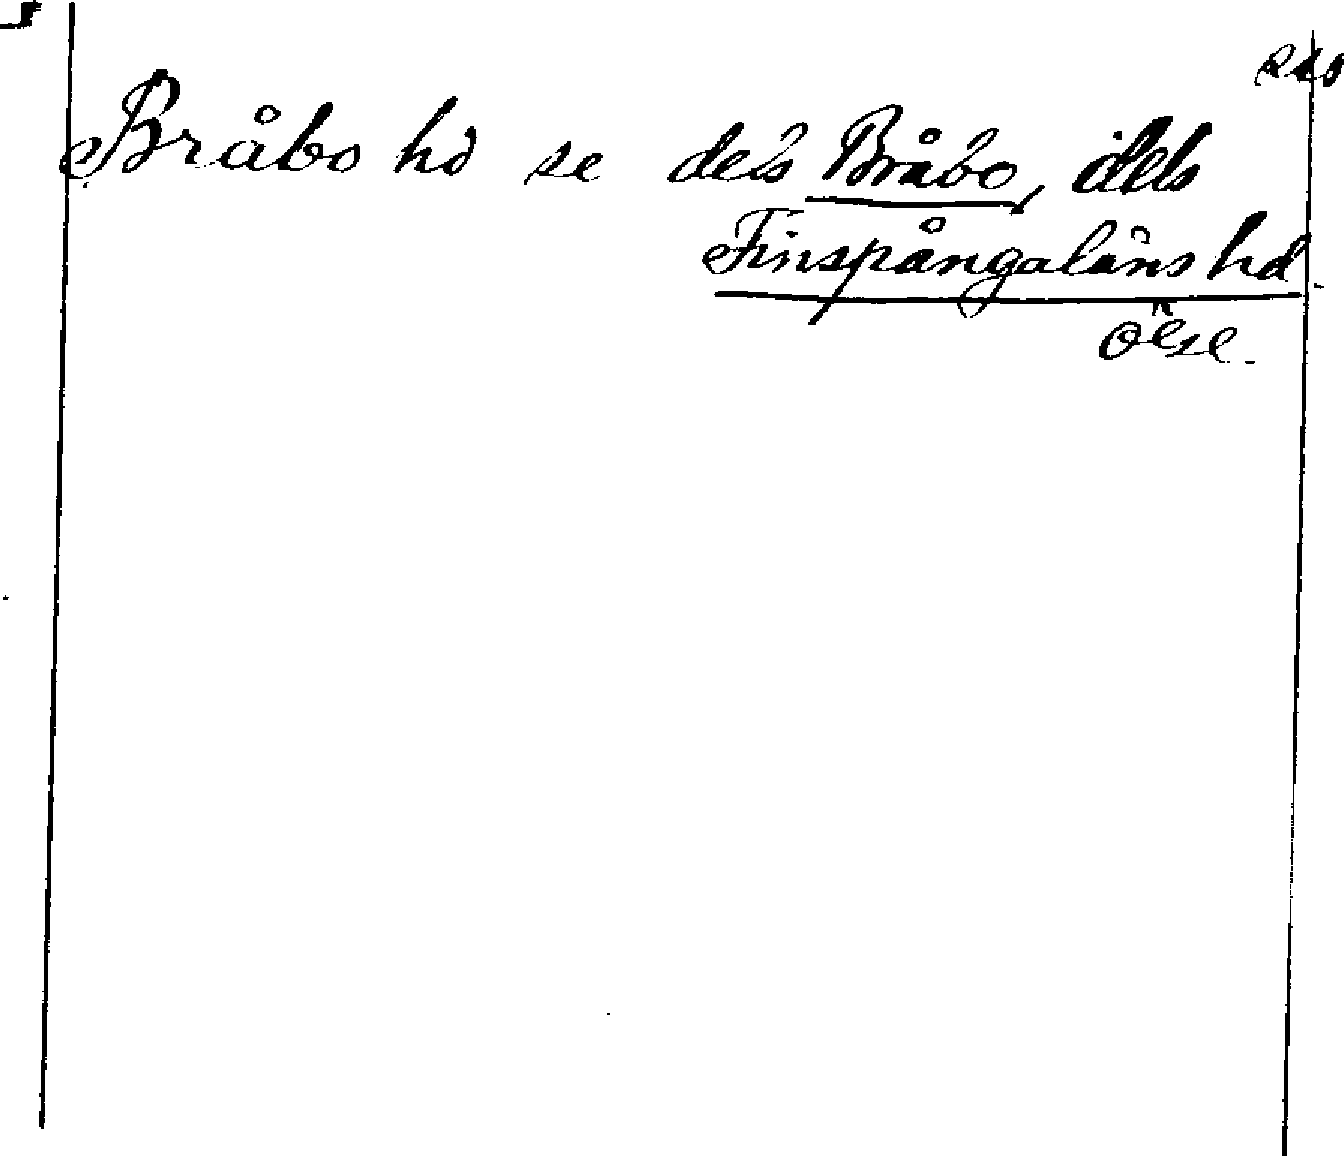 Bråbo hd se dels Bråbo, dels
Finspångaläns hd.